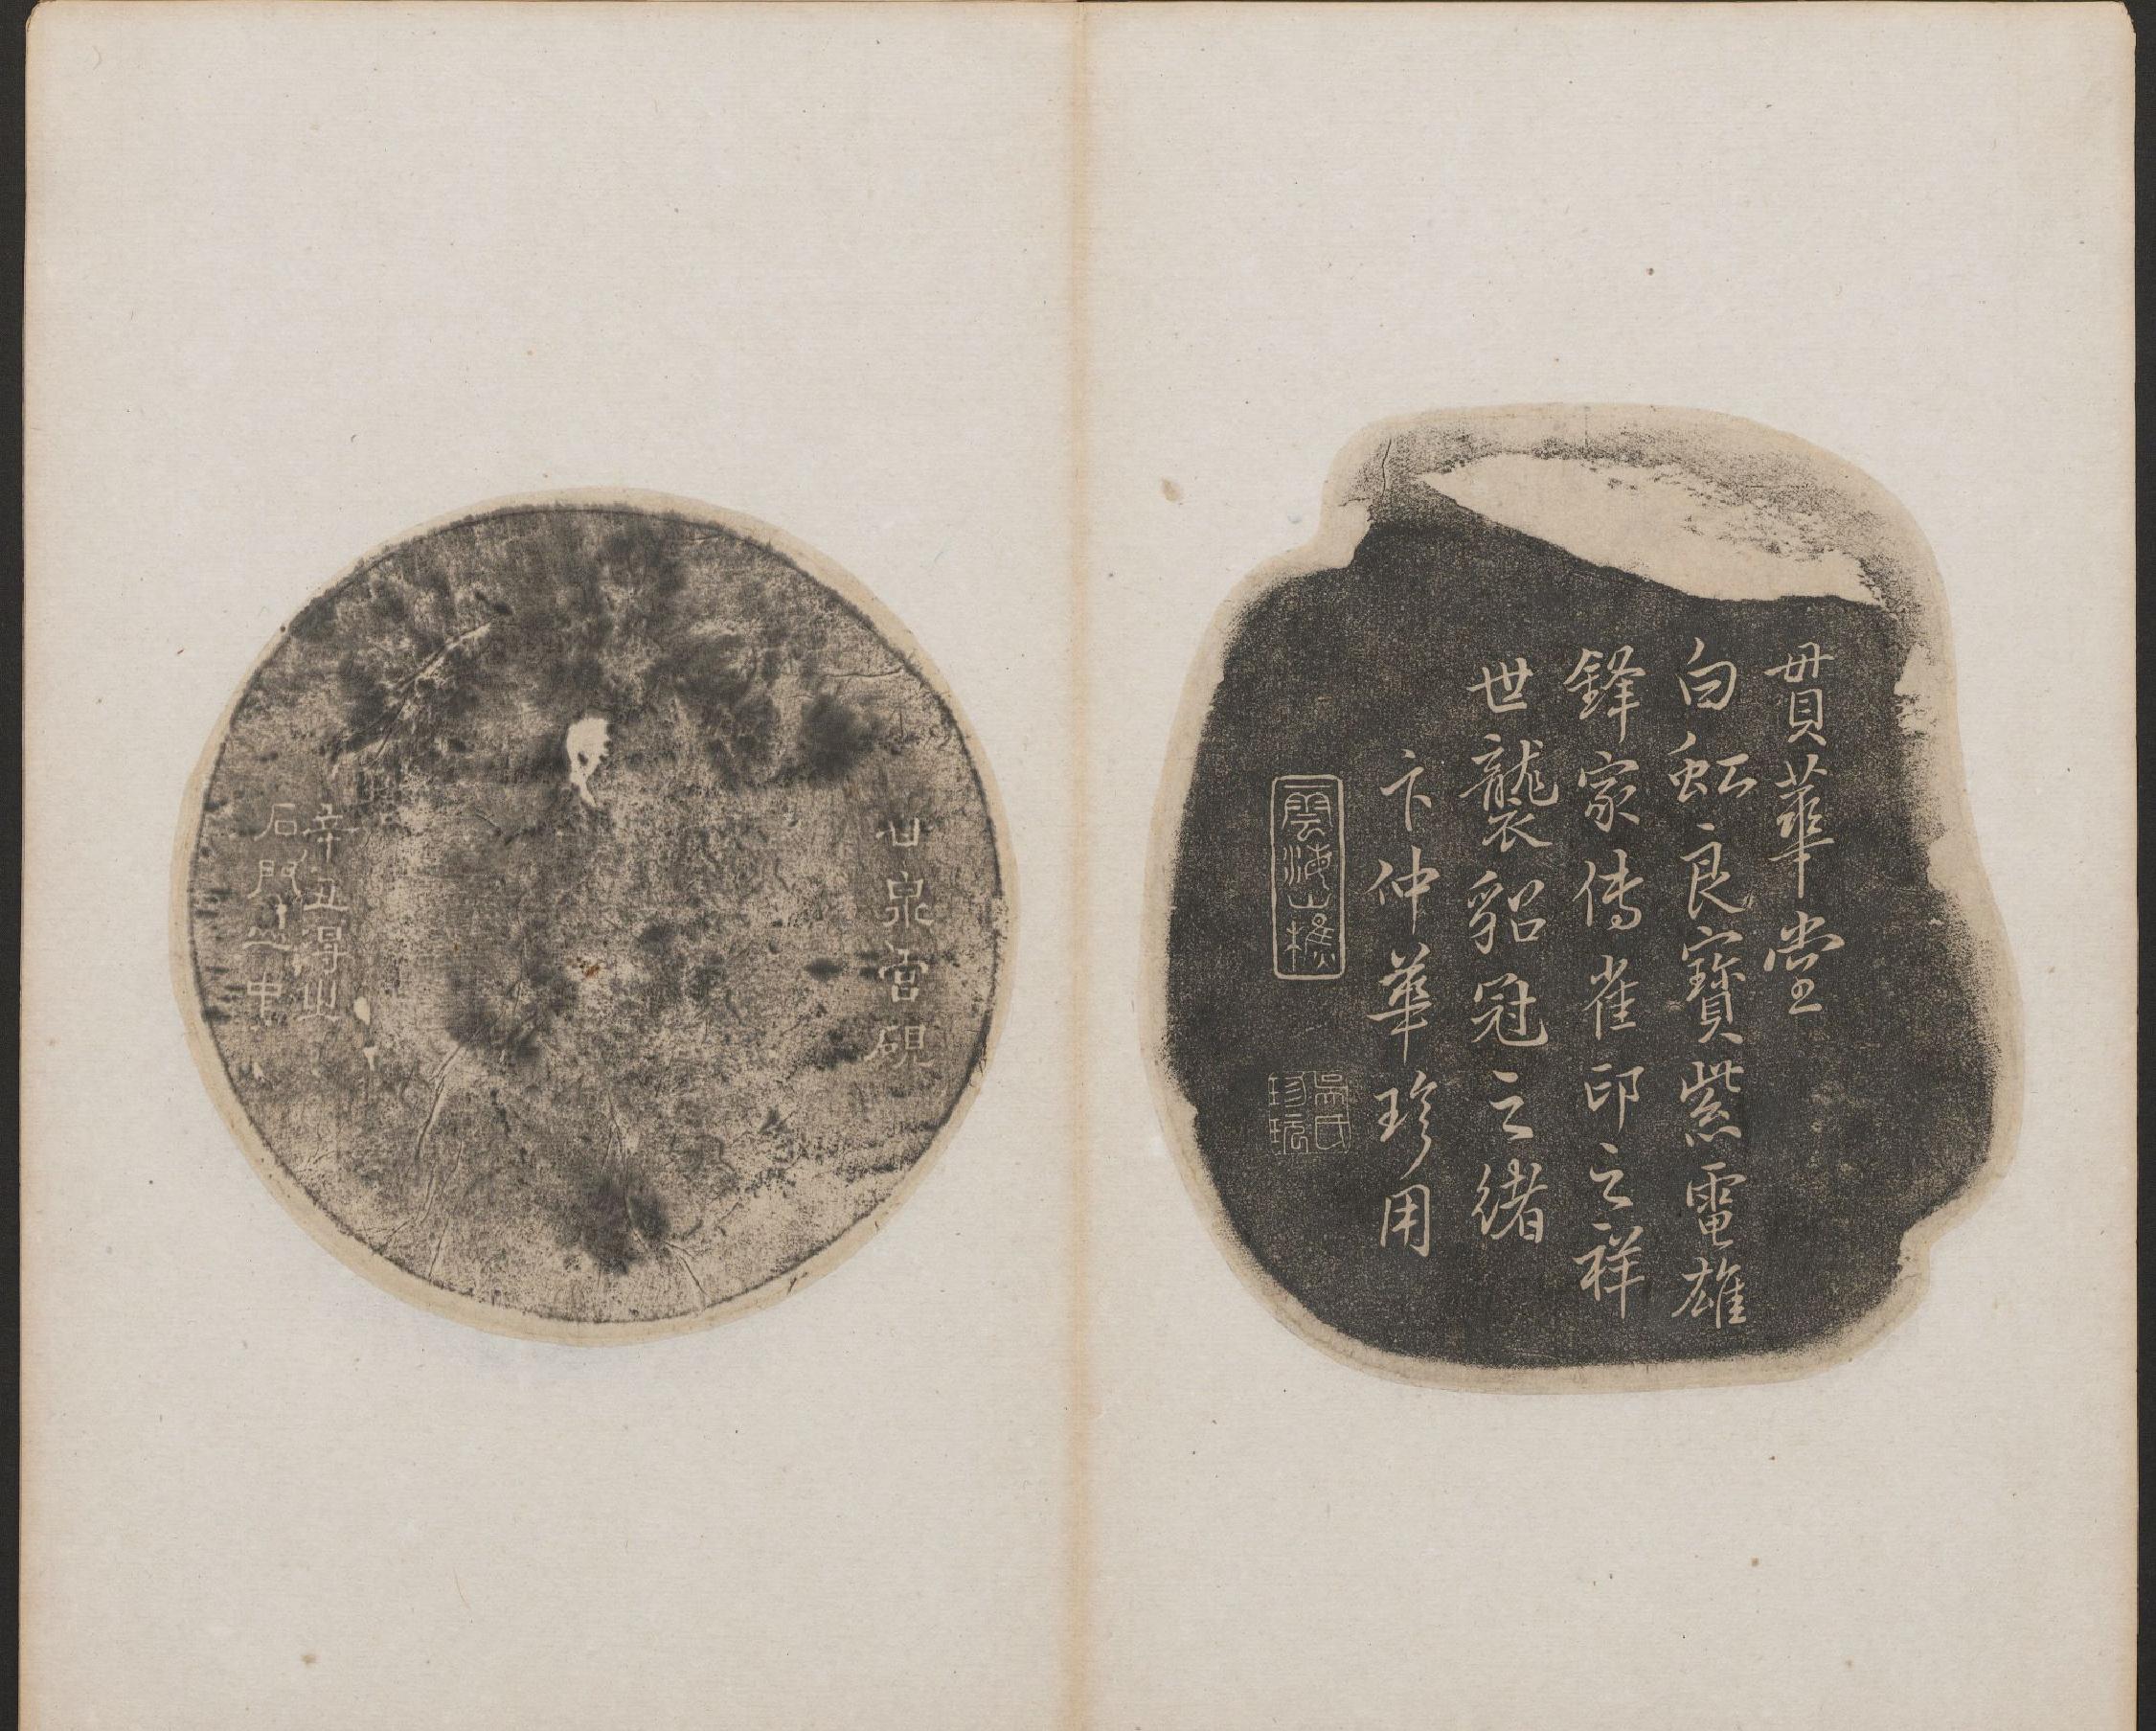 貫華堂
白虹良寶紫電雄
鋒家傳雀印之祥
世襲貂冠之緒
卞仲華珍用
雲海山樵
吳氏
珍玩
甘泉宮硯
辛丑得山
石門之中